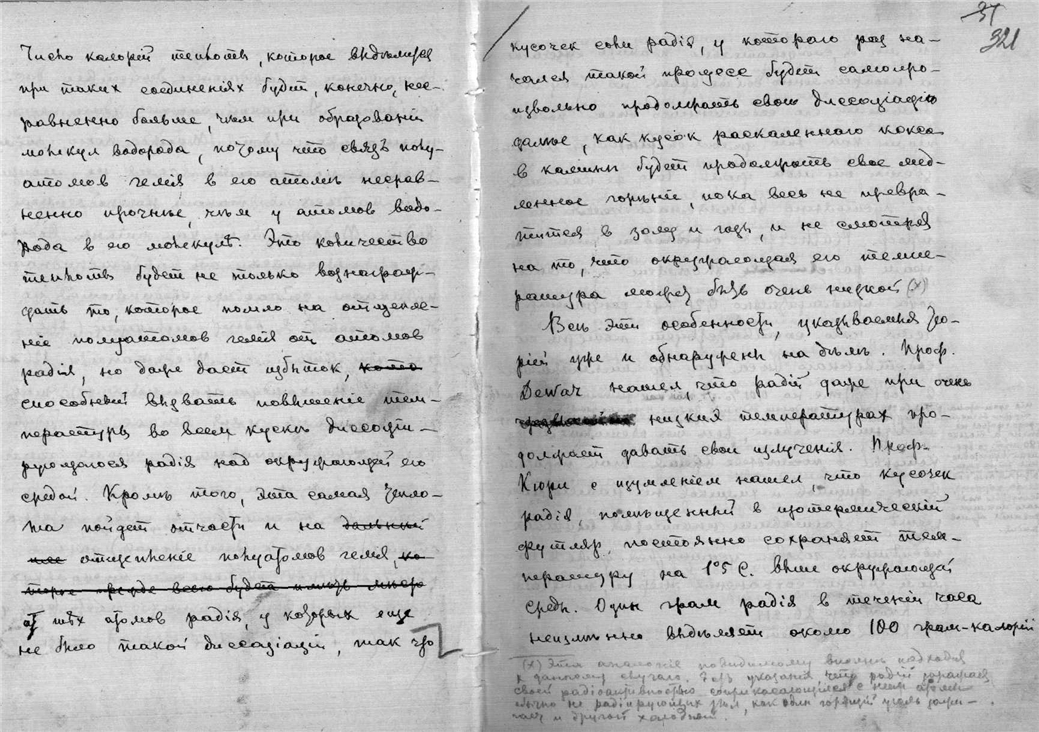 Число калорій теплоты, которое выдѣлится
при такихъ соединеніяхъ будетъ, конечно, нес-
равненно больше, чѣмъ при образованіи
молекул водорода, потому что связь полу-
атомов гелія в его атомѣ несрав-
ненно прочнѣе, чѣм у атомов водо-
рода в его молекулѣ. Это количество
теплоты будет не только вознаграж-
дать то, которое пошло на отщепле-
ніе полуатомов гелія от атомов
радія, но даже дает избыток,
способный вызвать повышеніе тем-
пературы во всем кускѣ диссоціи-
рующагося радія над окружающей его
средой. Кромѣ того, эта самая тепло-
та пойдет отчасти и на дальнѣй
шее отщепленіе полуатомов гелія, ко-
торое прежде всего будет имѣть мѣсто
от тѣх атомов радія, у которых еще
не было такой диссоціаціи, так что
37
321
кусочек соли радія, у котораго раз на-
чался такой процесс будет самопро-
извольно продолжать свою диссоціацію
далѣе, как кусок раскаленнаго кокса
в каминѣ будет продолжать свое мед-
ленное горѣніе, пока весь не превра-
тится в золу и газъ, и не смотря
на то, что окружающая его темпе-
ратура может быть очень низкой (x)
Всѣ эти особенности, указываемыя тео-
ріей уже и обнаружены на дѣлѣ. Проф.
Dewar нашел, что радій даже при очень
низких температурах про-
должает давать свои излученія. Проф.
Кюри с изумленіем нашел, что кусочек
радія, помѣщенный в изотермическій
футляр, постоянно сохраняет тем-
пературу на 1°5 С. выше окружающей
среды. Один грам радія в теченіи часа
неизмѣнно выдѣляет около 100 грам-калорій
(x) Эта аналогія повидимому вполнѣ подходит
к данному случаю. Есть указанія что радій заражает
своей радіоактивностью соприкасающіяся с ним атомы
обычно не радіирующих тѣл, как один горящій уголь зажи-
гает и другой холодный.